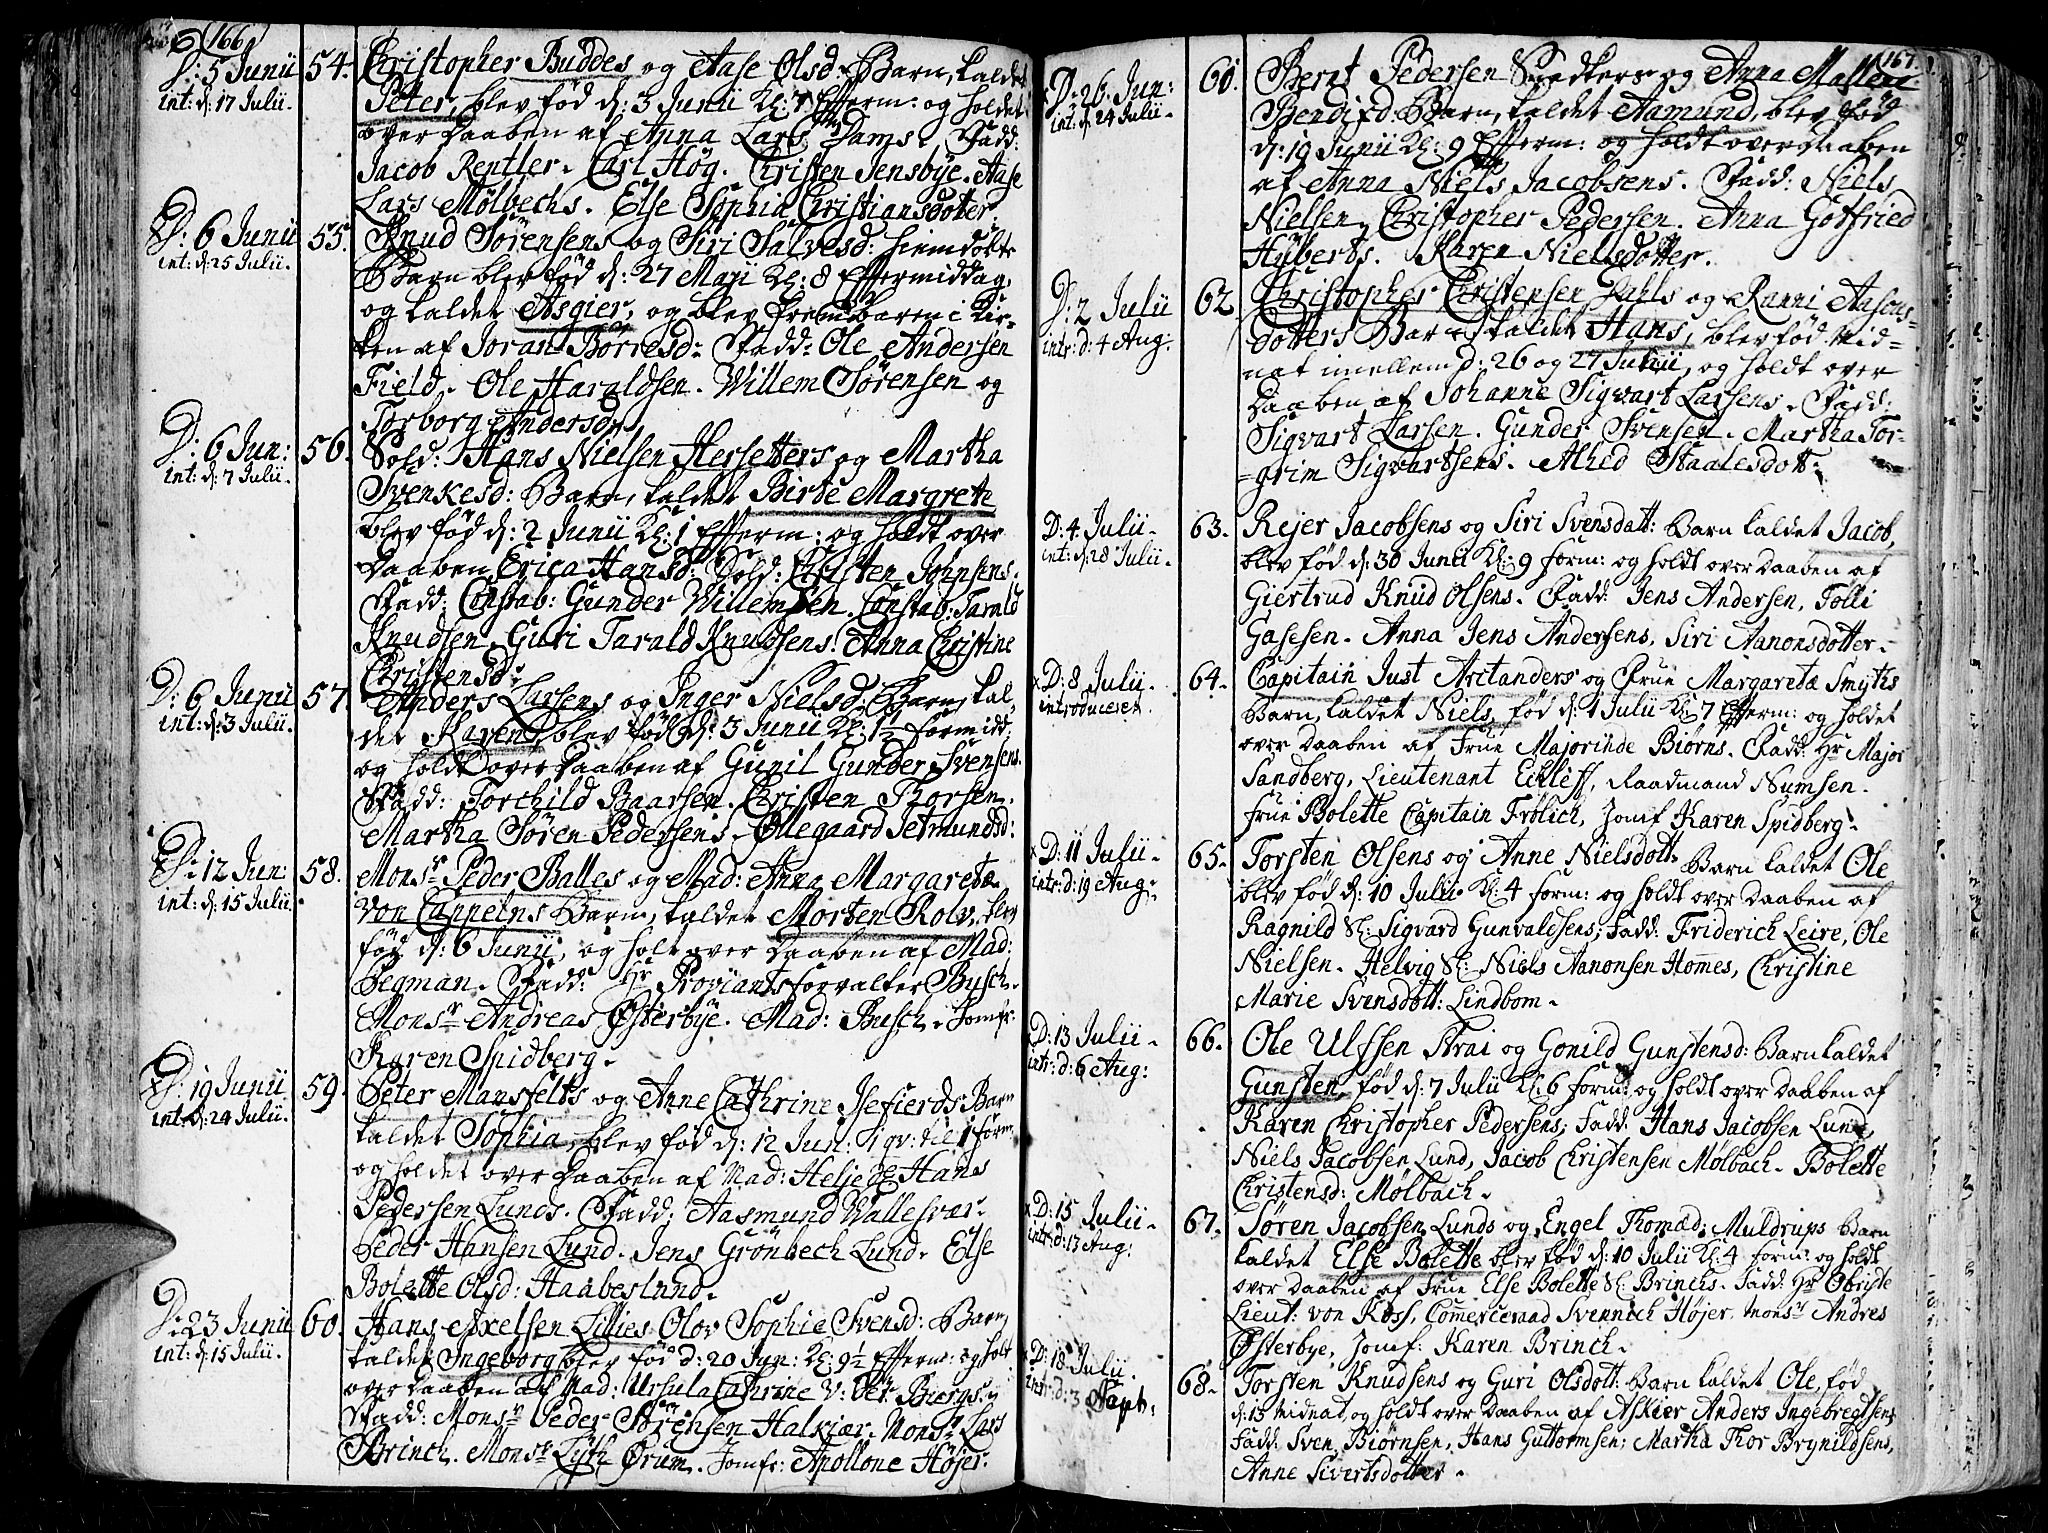 166.
D: 5 Junii 54. Christopher Buddes og Aase Olsd: Barn, kaldet
int: d: 17 Julii. Peter, blev fød d: 3 Junii Kl: 7 Efterm: og holdet
over Daaben af Anna Lars Dams. Fadd:
Jacob Rentler. Carl Høg. Christen Jensbye. Aase
Lars Mølbechs. Else Sophia Christiansdotter.
D: 6 Junii 55. Knud Sørensens og Siri Salvesd: hiemdøbte
int: d: 25 Julii. Barn blev fød d: 27 Maji Kl: 8 Eftermiddag,
og kaldet Asgier, og blev frembaaren i Kir-
ken af Joran Børresd: Fadd: Ole Andersen
Field. Ole Haraldsen. Willem Sørensen og
Torborg Andersd:
D: 6 Jun: 56. Sold: Hans Nielsen Hersetters og Martha
int: d: 7 Julii. Svenkesd: Barn, kaldet Birte Margrete
blev fød d: 2 Junii Kl: 1 Efterm: og holdt over
Daaben Erica Hansd: Sold: Christen Johnsens.
Fadd: Constab: Gunder Willemsen. Constab: Tarald
Knudsen. Guri Tarald Knudsens. Anna Christine
Christensd:
D: 6 Junii 57. Anders Larsens og Inger Nielsd: Barn, kal-
int: d: 3 Julii. det Karen, blev fød d: 3 Junii Kl: 1½ formidd:
og holdt over Daaben af Gunil Gunder Svensens.
Fadd: Torchild Baarsen. Christen Thorsen.
Martha Søren Pedersens. Ollegaard Jetmundsd:
D: 12 Jun: 58. Monsr Peder Balles og Mad: Anna Margareta
int: d: 15 Julii. von Cappelns Barn, kaldet Morten Rolv, blev
fød d: 6 Junii, og holt over Daaben af Mad:
Segman. Fadd: Hr Proviantsforvalter Busch.
Monsr Andreas Østerbye. Mad: Busch. Jomfr:
Karen Spidberg.
D: 19 Junii 59. Peter Mansfelts og Anne Cathrine Isefierds Barn
int: d: 24 Julii. kaldet Sophia, blev fød d: 12 Jun: 1 qv: til 1 form:
og holdet over Daaben af Mad: Helje Sl: Hans
Pedersen Lunds. Fadd: Aasmund Vallesvær.
Peder Hansen Lund. Jens Grønbech Lund. Else
Bolette Olsd: Haabeslund.
D: 23 Junii 60. Hans Axelsen Lillies Olov Sophie Svensd: Barn,
int: d: 15 Julii. kaldet Ingeborg blev fød d: 20 Jun: Kl: 9½ Efterm: og holt
over Daaben af Mad: Ursula Cathrine V: der Biergs.
Fadd: Monsr Peder Sørensen Halkiær. Monsr Lars
Brinch. Monsr Lyth Ørum. Jomfr: Apollone Højer.
167.
D: 26 Jun: 61. Berent Pedersen Snedkers og Anna Mallene
int: d: 24 Julii. Bendixd: Barn, kaldet Aamund, blev fød
d: 19 Junii Kl: 9 Efterm: og holdt over Daaben
af Anna Niels Jacobsens. Fadd: Niels
Nielsen. Christopher Pedersen. Anna Gotfried
Huberts. Karen Nielsdotter.
D: 2 Julii 62. Christopher Christensen Dahls og Ranni Aasens-
intr: d: 4 Aug: dotters Barn, kaldet Hans, blev fød Mid-
nat imellem d: 26 og 27 Junii, og holdt over
Daaben af Johanne Sigvart Larsens. Fadd:
Sigvart Larsen. Gunder Svensen. Martha Tor-
=grim Sigvartsens. Alhed Staalesdott:
D: 4 Julii. 63. Rejer Jacobsens og Siri Svensdatt: Barn kaldet Jacob,
int: d: 28 Julii. blev fød d: 30 Junii Kl: 9 form: og holdt over Daaben af
Giertrud Knud Olsens. Fadd: Jens Andersen, Tolli
Gasesen. Anna Jens Andersens, Siri Aanonsdotter.
x D: 8 Julii. 64. Capitain Just Arctanders og Frue Margareta Smyths
introduceret. Barn, kaldet Niels, fød d: 1 Julii Kl: 7 Efterm: og holdet
over Daaben af Frue Majorinde Biørns. Fadd: Hr Major
Sandberg, Lieutenant Eckleff, Raadmand Numsen.
Frue Bolette Capitain Frølich, Jomf Karen Spidberg.
x D: 11 Julii. 65. Torsten Olsens og Anne Nielsdott. Barn kaldet Ole
intr: d: 19 Aug: blev fød d: 10 Julii Kl: 4 form: og holdt over Daaben af
Ragnild Sl: Sigvard Gunvaldsens; Fadd: Friderich Leire, Ole
Nielsen. Helvig Sl: Niels Aanonsen Hommes, Christine
Marie Svensdott: Lindbom.
D: 13 Julii. 66. Ole Ulfsen Strai og Gonild Gunstensd: Barn kaldet
intr: d: 6 Aug: Gunsten, fød d: 7 Julii Kl: 6 form: og holdt over Daaben af
Karen Christopher Pedersens; Fadd: Hans Jacobsen Lund,
Niels Jacobsen Lund, Jacob Christensen Mølbach. Bolette
Christensd: Mølbach.
x D: 15 Julii. 67. Søren Jacobsen Lunds og Engel Thomæd: Muldrups Barn
intr: d: 13 Aug: kaldet Else Bolette blev fød d: 10 Julii Kl: 4 form: og holdt
over Daaben af Frue Else Bolette Sl: Brinchs. Fadd: Hr Obriste
Lieut: von Koss, Commerceraad Svennich Højer, Monsr Andres
Østerbye, Jomf: Karen Brinch.
x D: 18 Julii. 68. Torsten Knudsens og Guri Olsdott: Barn kaldet Ole, fød
intr: d: 3 Sept. d: 15 Midnat, og holdt over Daaben af Askier Anders Ingebregtsens
Fadd: Sven Biørnsen, Hans Guttormsen; Martha Thor Brynildsens,
Anne Sivertsdotter.